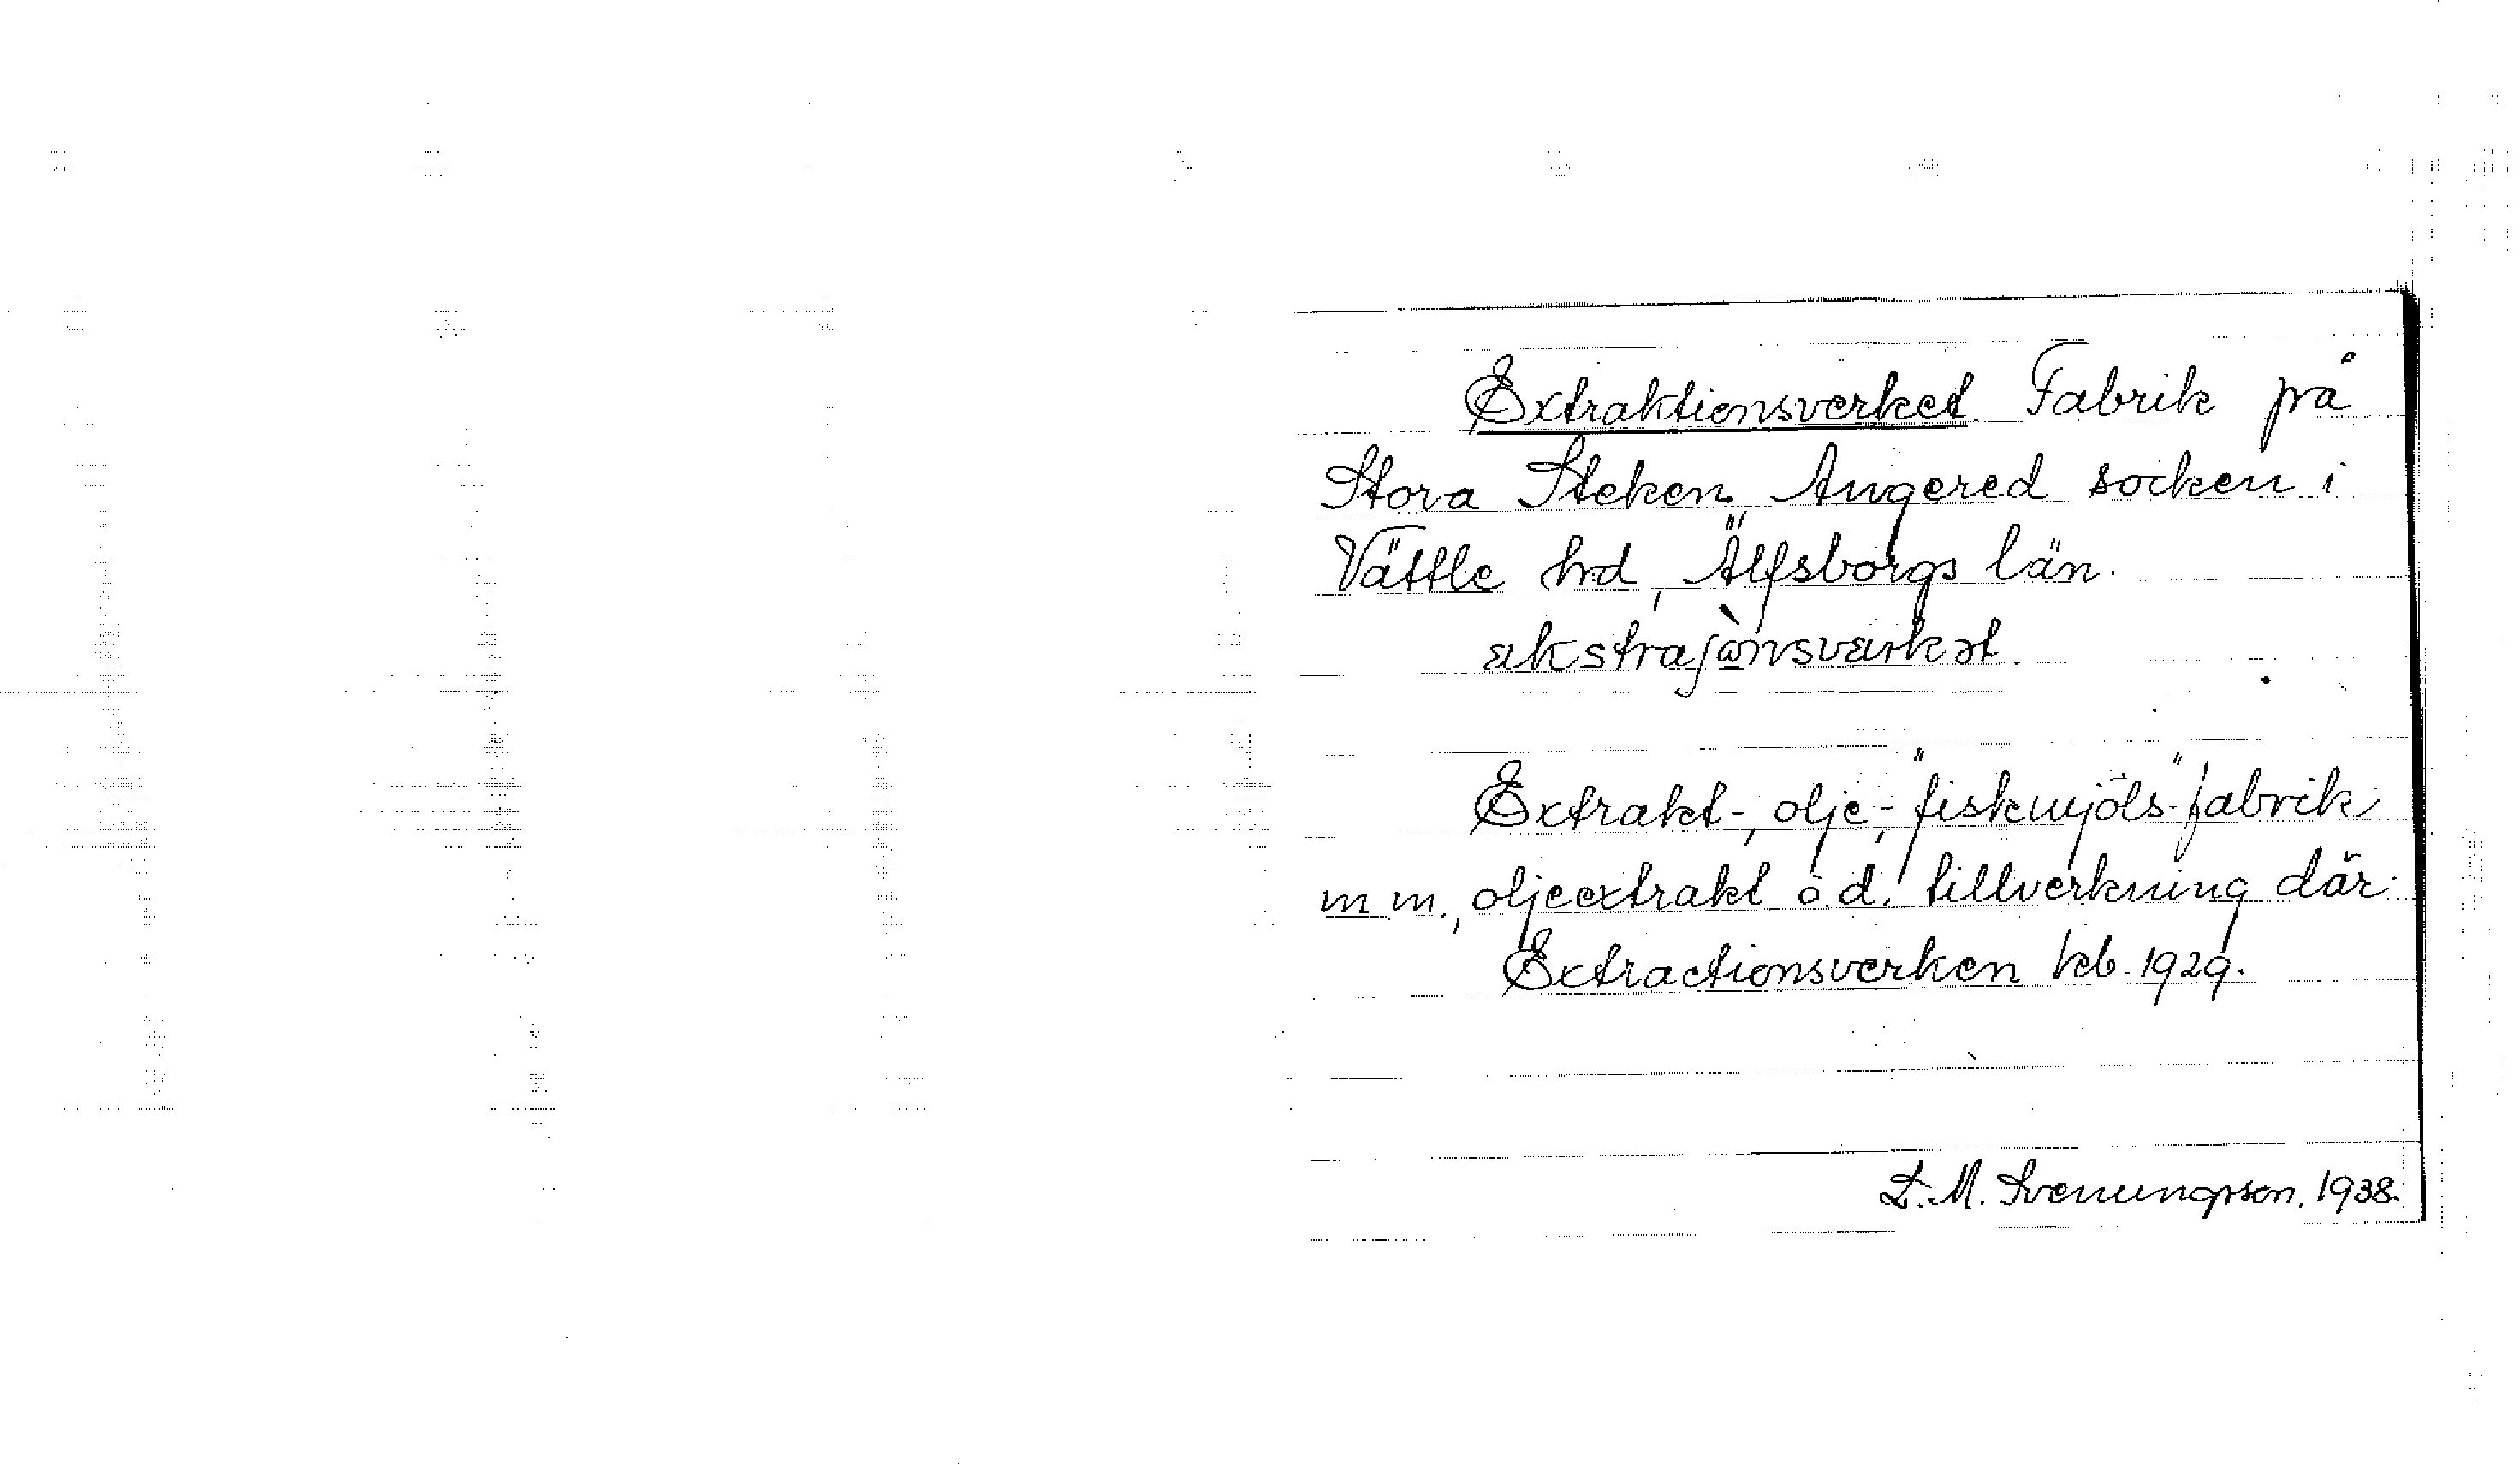 Extraktionsverket. Fabrik på
Stora Steken, Angered socken i
Vättle hrd, Älfsborgs län.
ækstraʃὼnsværkət.
Extrakt-, olje-, "fiskmjöls"-fabrik
m.m., oljeextrakt o.d. tillverkning där.
Extractionsverken keb. 1929.
L. M. Svenungsson. 1938.